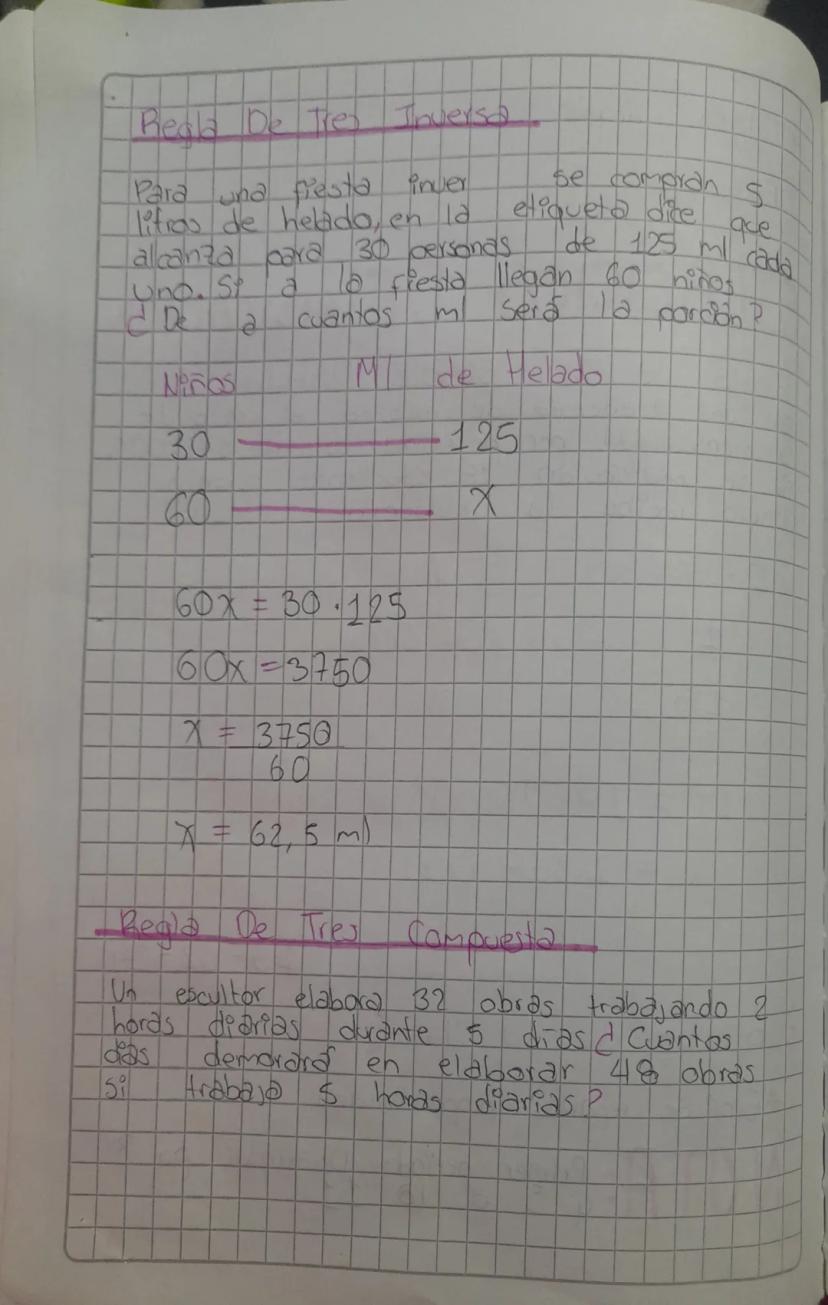 Regla De Tres Inversa
Para una fiesta inver se compran 5
litros de helado, en la etiqueta dice que
alcanza para 30 personas de 125 ml cada
uno. Si a la fiesta llegan 60 niños
¿De a cuantos ml será la porción?
Niños Ml de Helado
30 125
60 x
60x = 30 · 125
60x = 3750
x = 3750
60
x = 62,5 ml
Regla De Tres Compuesta
Un escultor elabora 32 obras trabajando 2
horas diarias durante 5 dias ¿Cuantos
dias demorará en elaborar 48 obras
si trabaja 5 horas diarias?